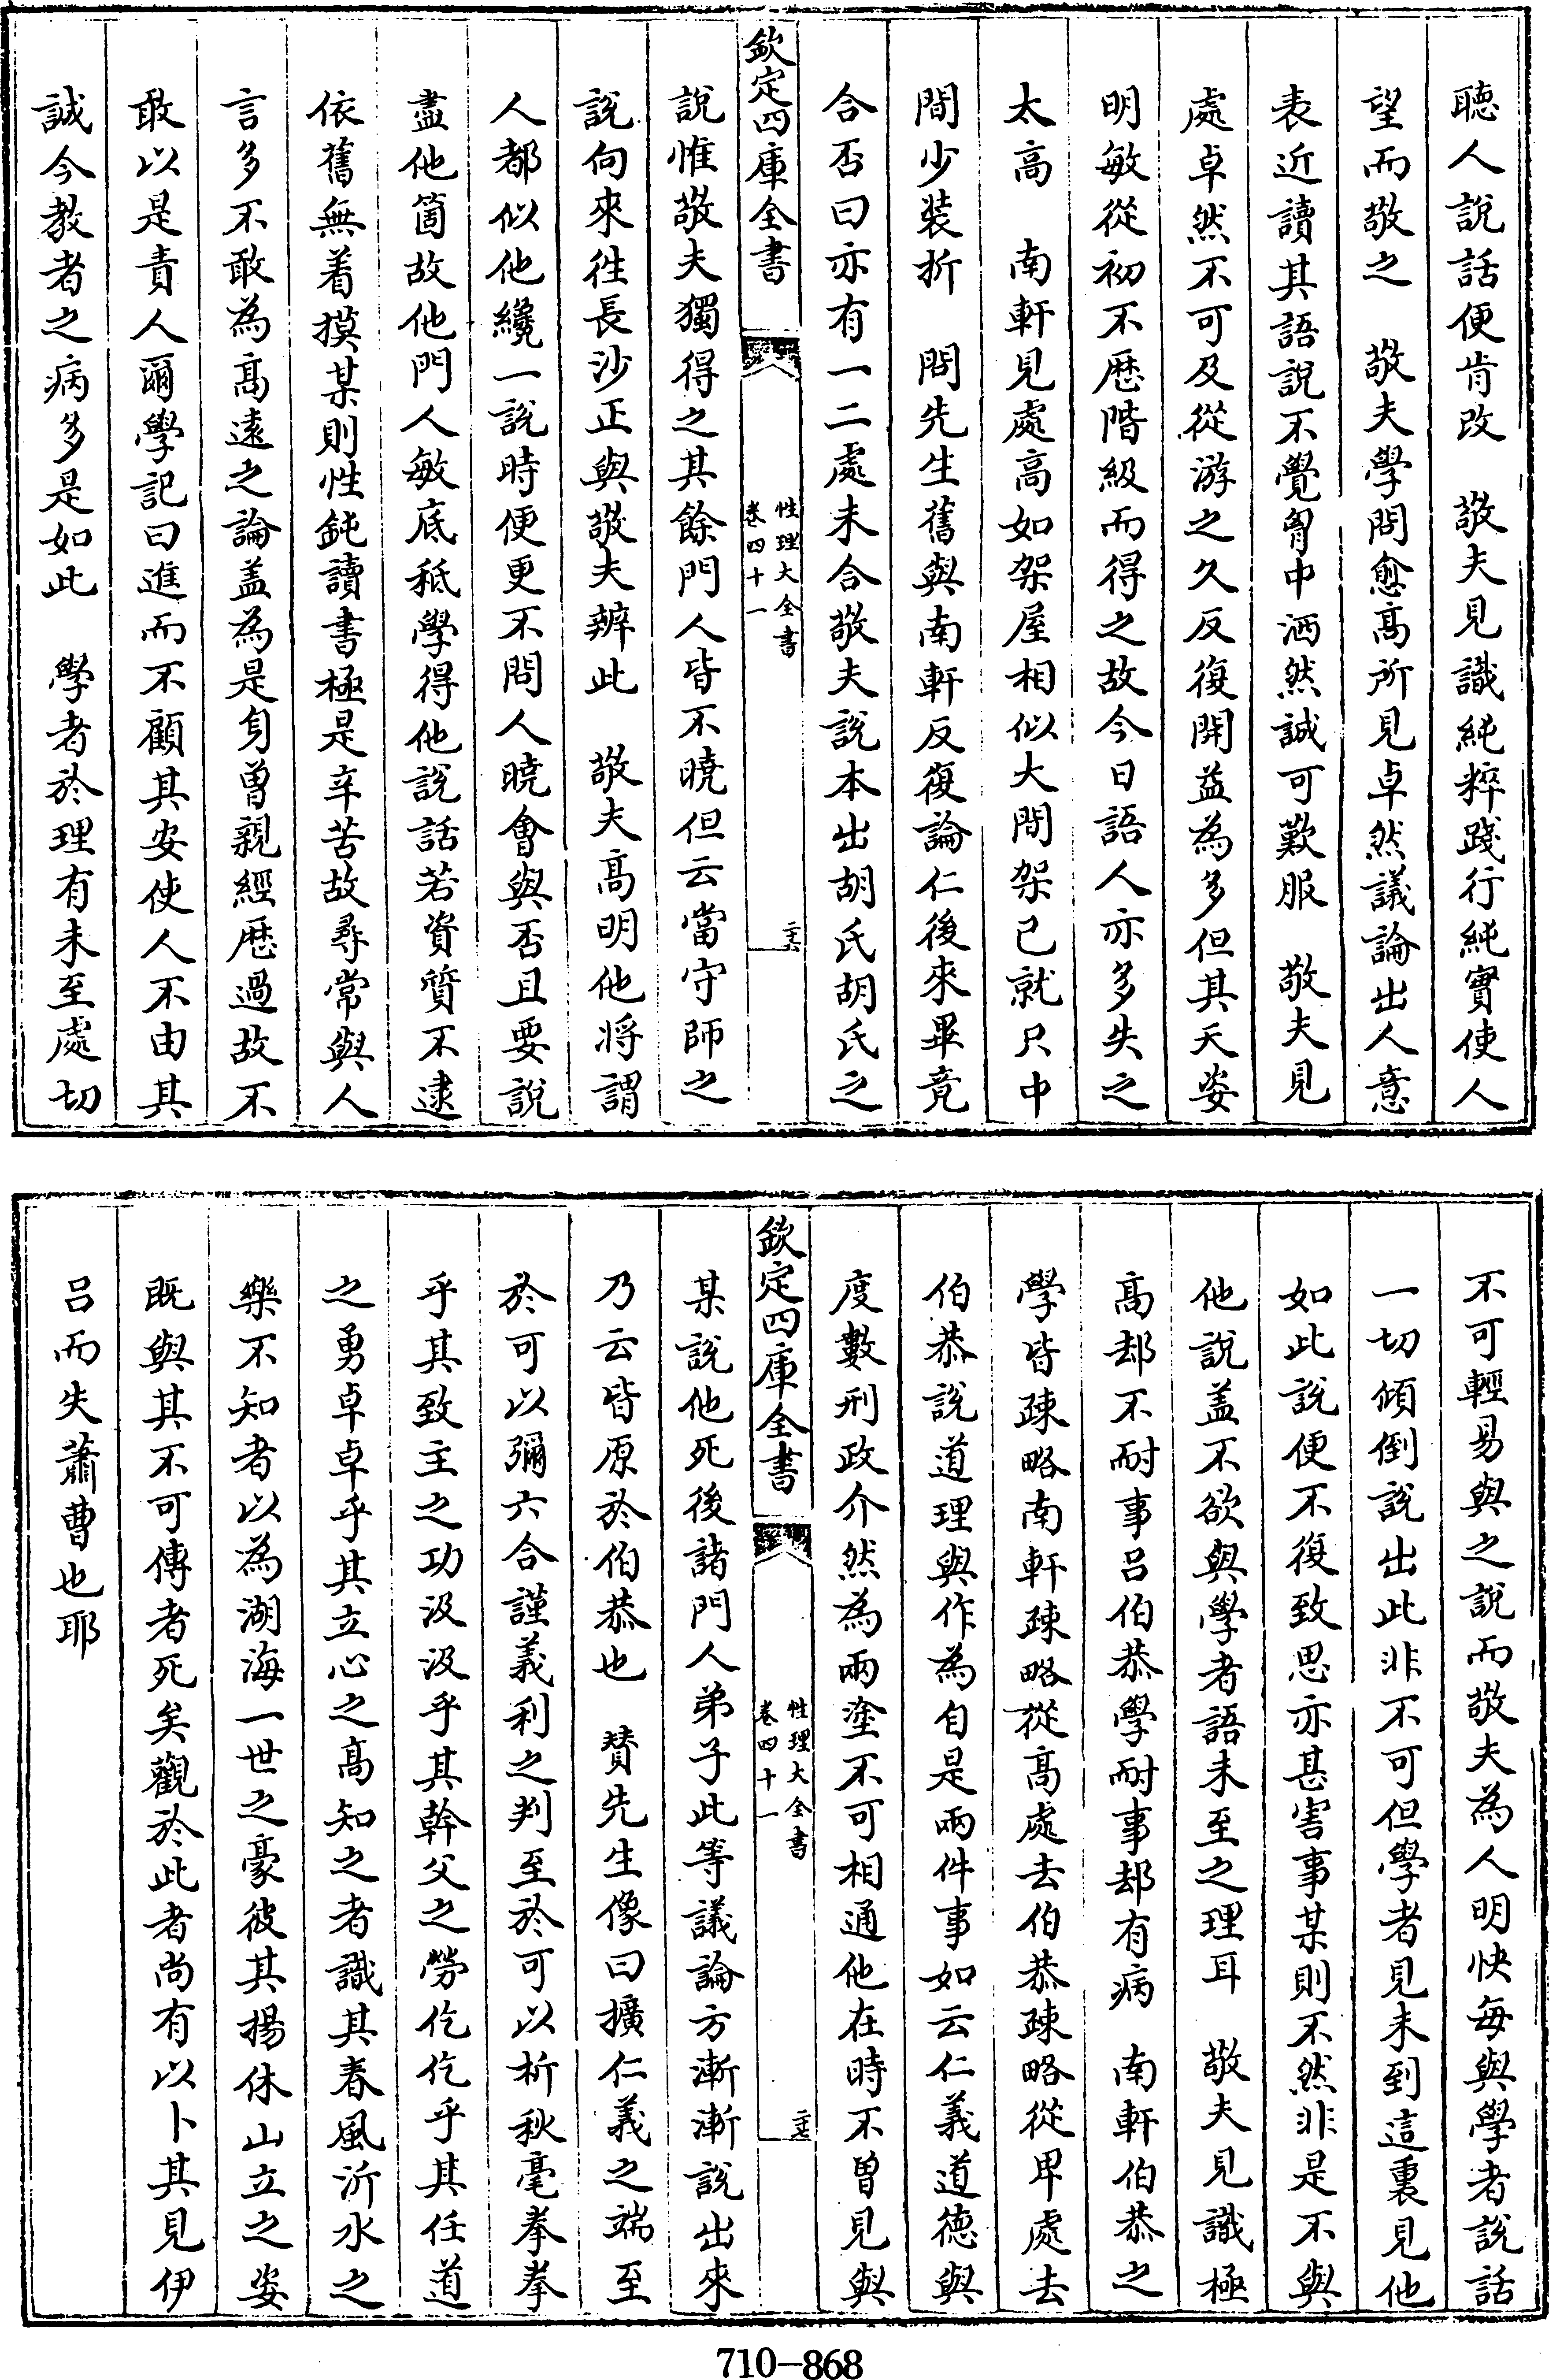 聽人說話便肯改　敬夫見識純粹踐行純實使人
望而敬之　敬夫學問愈髙所見卓然議論出人意
表近讀其語說不覺胷中洒然誠可歎服　敬夫見
處卓然不可及從游之久反復開益為多但其天姿
明敏從初不歴階級而得之故今日語人亦多失之
太高　南軒見處高如架屋相似大間架已就只中
間少裝折　問先生舊與南軒反復論仁後來畢竟
合否曰亦有一二處未合敬夫說本出胡氏胡氏之
欽定四庫全書
性理大全書
卷四十一
二十六
說惟敬夫獨得之其餘門人皆不曉但云當守師之
說向來徃長沙正與敬夫辨此　敬夫髙明他將謂
人都似他纔一說時便更不問人曉會與否且要說
盡他箇故他門人敏底秪學得他說話若資質不逮
依舊無着摸某則性鈍讀書極是辛苦故尋常與人
言多不敢為髙逺之論盖為是身曽親經歴過故不
敢以是責人爾學記曰進而不顧其安使人不由其
誠今教者之病多是如此　學者於理有未至處切
不可輕易與之說而敬夫為人明快每與學者說話
一切傾倒說出此非不可但學者見未到這裏見他
如此說便不復致思亦甚害事某則不然非是不與
他說盖不欲與學者語未至之理耳　敬夫見識極
髙却不耐事吕伯恭學耐事却有病　南軒伯恭之
學皆疎略南軒疎略從髙處去伯恭疎略從卑處去
伯恭說道理與作為自是兩件事如云仁義道德與
度數刑政介然為兩塗不可相通他在時不曽見與
欽定四庫全書
性理大全書
卷四十一
二十七
某說他死後諸門人弟子此等議論方漸漸說出來
乃云皆原於伯恭也　賛先生像曰擴仁義之端至
於可以彌六合謹義利之判至於可以析秋毫拳拳
乎其致主之功汲汲乎其幹父之勞仡仡乎其任道
之勇卓卓乎其立心之髙知之者識其春風沂水之
樂不知者以為湖海一世之豪彼其揚休山立之姿
既與其不可傳者死矣觀於此者尚有以卜其見伊
吕而失蕭曹也耶
710-868